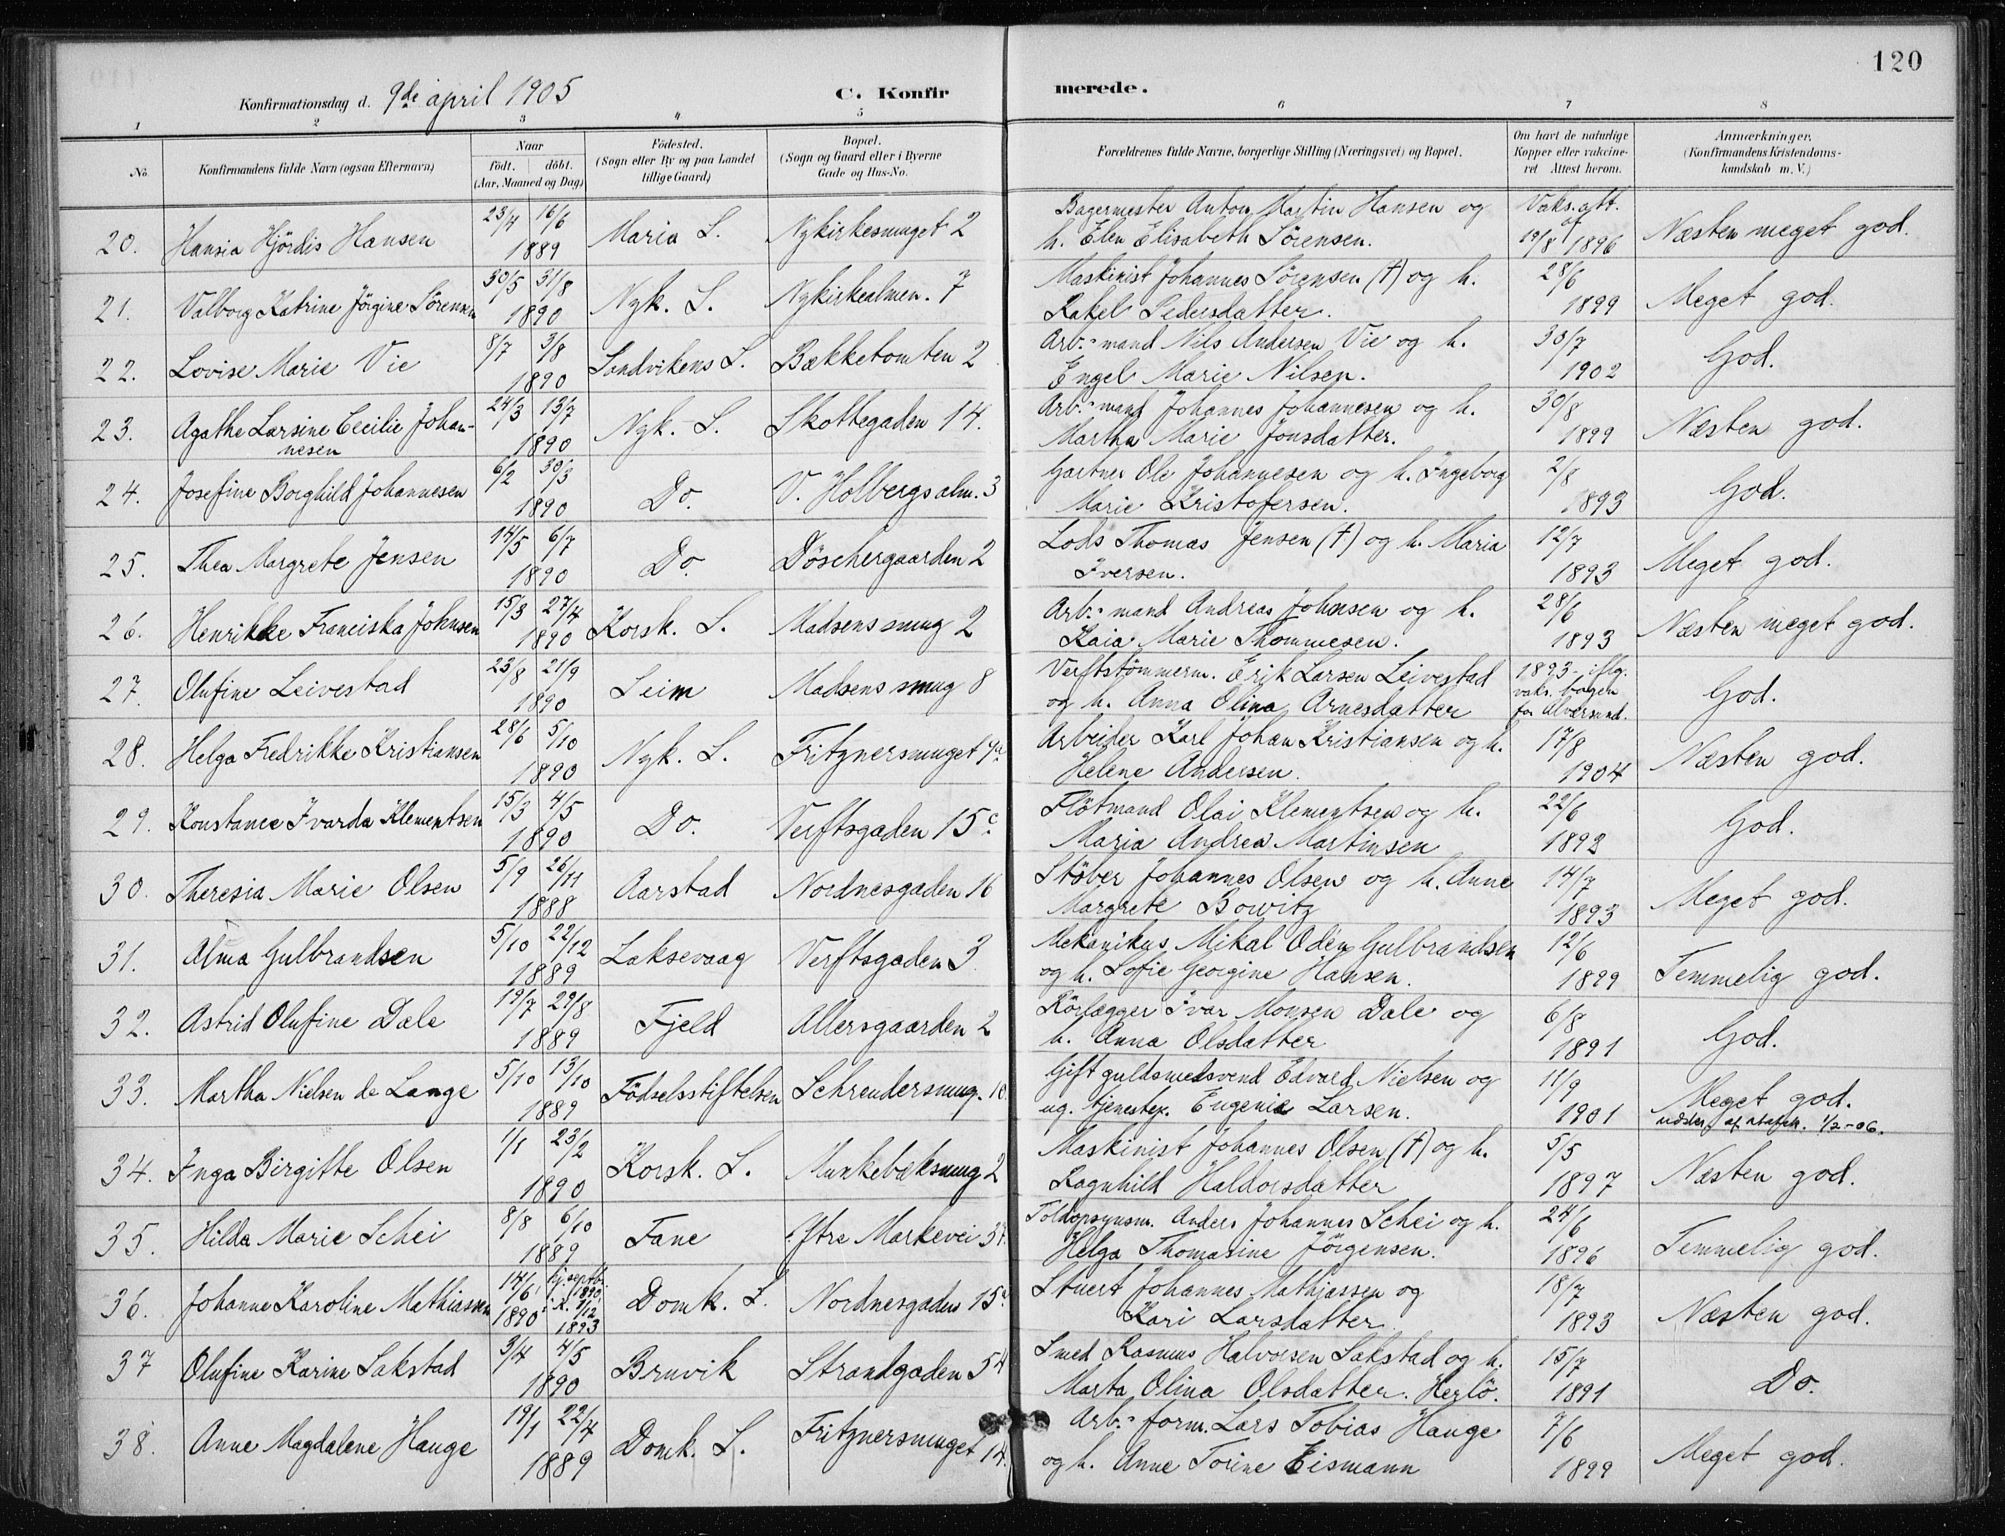 120
Konfirmationsdag d. 9de april 1905 C. Konfirmerede.
1 2 3 4 5 6 7 8
No. Konfirmandens fulde Navn (ogsaa Efternavn) Naar født. døbt. (Aar, Maaned og Dag) Fødested. (Sogn eller By og paa Landet tillige Gaard) Bopæl. (Sogn og Gaard eller i Byerne Gade og Hus-No. Forældrenes fulde Navne, borgerlige Stilling (Næringsvei) og Bopæl. Om havt de naturlige Kopper eller vakcineret Attest herom. Anmærkninger. (Konfirmandens Kristendomskundskab m. V.)
20. Hansia Hjördis Hansen 23/4 16/6 1889 Maria S. Nykirkesmuget 2 Bagermester Anton Martin Hansen og
h. Elen Elisabeth Sörensen. Vaks. att. af 19/8 1896 Næsten meget god.
21. Valborg Katrine Jörgine Sörensen 30/5 31/8 1890 Nyk. S. Nykirkealmen. 7 Maskinist Johannes Sörensen (†) og h.
Rakel Pedersdatter. 28/6 1899 Meget god.
22. Lovise Marie Vie 8/7 3/8 1890 Sandvikens S. Bækketomten 2 Arb.mand Nils Andersen Vie og h.
Engel Marie Nilsen. 30/7 1902 God.
23. Agathe Larsine Cecilie Johan-
nesen 24/3 13/7 1890 Nyk. S. Skottegaden 14. Arb.mand Johannes Johannesen og h.
Martha Marie Jonsdatter. 30/8 1899 Næsten god.
24. Josefine Borghild Johannesen 6/2 30/3 1890 Do. V. Holbergsalm. 3 Gartner Ole Johannesen og h. Ingeborg
Marie Kristofersen. 2/8 1893 God.
25. Thea Margrete Jensen 14/5 6/7 1890 Do. Döschergaarden 2 Lods Thomas Jensen (†) og h. Maria
Iversen. 12/7 1893 Meget god.
26. Henrikke Franciska Johnsen 15/3 27/4 1890 Korsk. S. Madsens smug 2 Arb.mand Andreas Johnsen og h.
Kaia Marie Thommesen. 28/6 1893 Næsten meget god.
27. Olufine Leivestad 23/8 21/9 1890 Seim Madsens smug 8 Verftstömmerm. Erik Larsen Leivestad
og h. Anna Olina Arnesdatter 1893 iflg. vaks. bogen for Alversund. God.
28. Helga Fredrikke Kristiansen 28/6 5/10 1890 Nyk. S. Fritznersmuget Arbeider Karl Johan Kristiansen og h.
Helene Andersen. 17/8 1904 Næsten god.
29. Konstance Ivarda Klementsen 15/3 4/5 1890 Do. Verftsgaden 15c Flötmand Olai Klementsen og h.
Maria Andrea Martinsen 22/6 1892 God.
30. Theresia Marie Olsen 5/9 26/11 1888 Aarstad Nordnesgaden 16 Stöber Johannes Olsen og h. Anne
Margrete Bowitz 14/7 1893 Meget god.
31. Alma Gulbrandsen 5/10 22/12 1889 Laksevaag Verftsgaden 3 Mekanikus Mikal Oden Gulbrandsen
og h. Sofie Georgine Hansen. 12/6 1899 Temmelig god.
32. Astrid Olufine Dale 19/7 29/8 1889 Fjeld Allersgaarden 2 Rörlægger Ivar Monsen Dale og
h. Anna Olsdatter 6/8 1891 God.
33. Martha Nielsen de Lange 5/10 13/10 1889 Födselsstiftelsen Schreudersmug. 10. Gift guldsmedsvend Edvard Nielsen og
ug. tjenestep. Eugenie Larsen. 11/9 1901 Meget god.
1/2-06.
34. Inga Birgitte Olsen 1/1 23/2 1890 Korsk. S. Munkebæksmug 2 Maskinist Johannes Olsen (†) og h.
Ragnhild Haldorsdatter 5/5 1897 Næsten god.
35. Hilda Marie Schei 8/8 6/10 1889 Fane Östre Markevei Toldopsynsm. Anders Johannes Schei og h.
Helga Thomasine Jörgensen. 24/6 1896 Temmelig god.
36. Johanne Karoline Mathiassen 14/6 1890 hj. septb. 1890, i k. 3/12 1893 Domk. S. Nordnesgaden 15a Stuert Johannes Mathjassen og
Kari Larsdatter. 18/7 1893 Næsten god.
37 Olufine Karine Sakstad 3/4 4/5 1890 Bruvik Strandgaden 54 Smed Rasmus Halvorsen Sakstad og h.
Marta Olina Olsdatter. Herlö. 15/7 1891 Do.
38. Anne Magdalene Hauge 19/1 22/4 1889 Domk. S. Fritznersmuget 14. Arb. form. Lars Tobias Hauge
og h. Anne Torine Eismann 7/6 1899 Meget god.